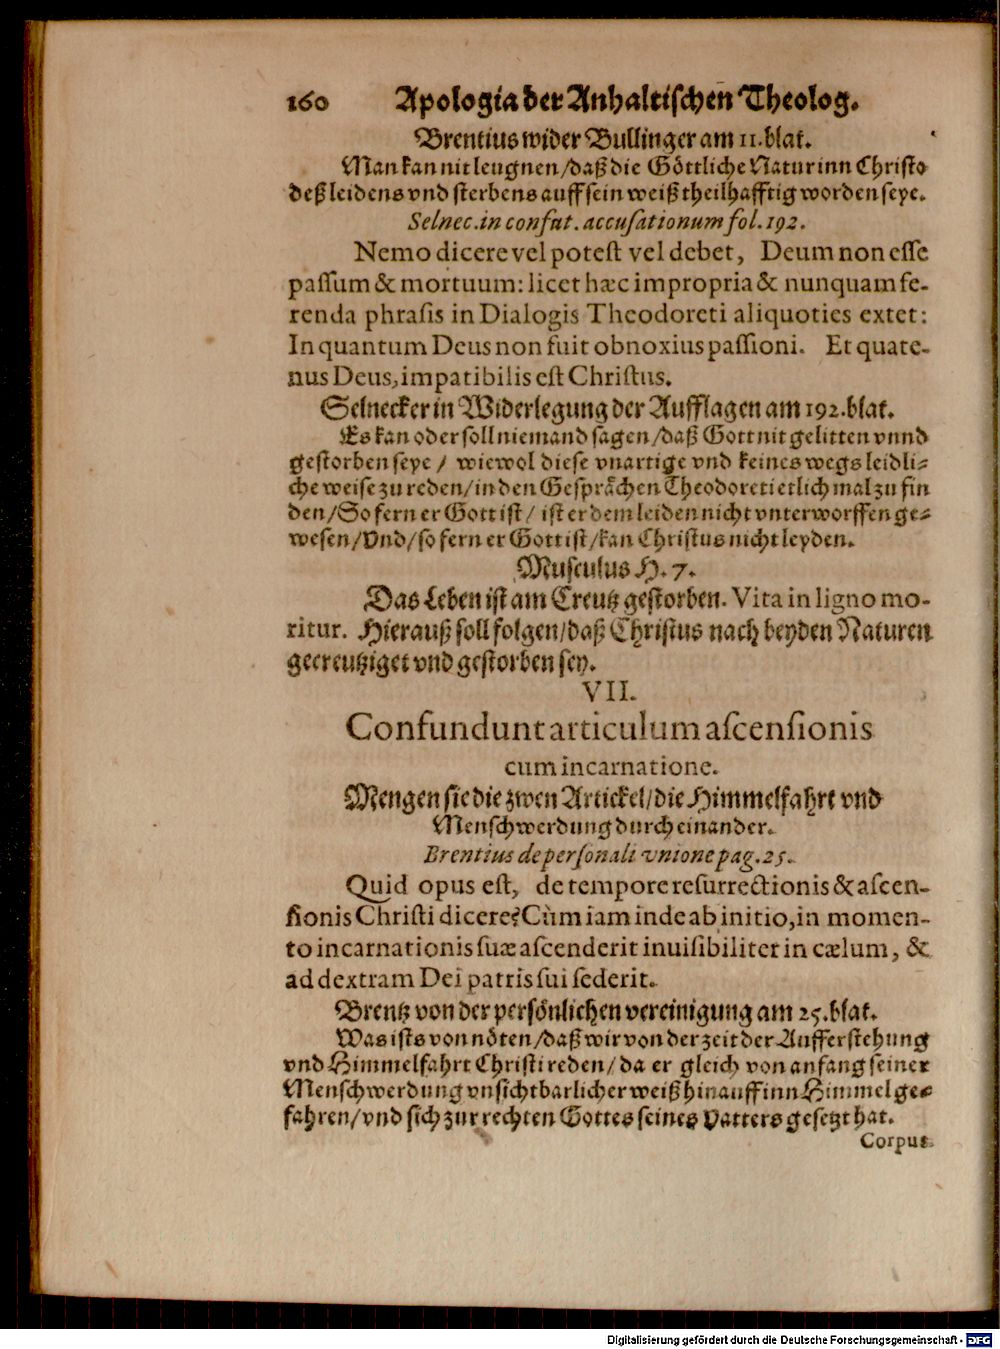 160 Apologia der Anhaltischen Theolog.
Brentius wider Bullinger am 11. blat.
Man kan nit leugnen/daß die Göttliche Natur inn Christo
deß leidens vnd sterbens auff sein weiß theilhafftig worden seye.
Selnec. in confut. accusationum fol. 192.
Nemo dicere vel potest vel debet, Deum non esse
passum & mortuum: licet hæc impropria & nunquam fe-
renda phrasis in Dialogis Theodoreti aliquoties extet:
In quantum Deus non fuit obnoxius passioni. Et quate-
nus Deus, impatibilis est Christus.
Selnecker in Widerlegung der Aufflagen am 192. blat.
Es kan oder soll niemand sagen/daß Gott nit gelitten vnnd
gestorben seye/ wiewol diese vnartige vnd keines wegs leidli-
che weise zu reden/in den Gesprächen Theodoreti etlich mal zu fin
den/So fern er Gott ist/ ist er dem leiden nicht vnterworffen ge-
wesen/Vnd/so fern er Gott ist/kan Christus nicht leyden.
Musculus H. 7.
Das Leben ist am Creutz gestorben. Vita in ligno mo-
ritur. Hierauß soll folgen/daß Christus nach beyden Naturen
gecreutziget vnd gestorben sey.
VII.
Confundunt articulum ascensionis
cum incarnatione.
Mengen sie die zwen Artickel/die Himmelfahrt vnd
Menschwerdung durch einander.
Brentius de personali vnione pag. 25.
Quid opus est, de tempore resurrectionis & ascen-
sionis Christi dicere? Cùm iam inde ab initio, in momen-
to incarnationis suæ ascenderit inuisibiliter in cælum, &
ad dextram Dei patris sui sederit.
Brentz von der persönlichen vereinigung am 25. blat.
Was ists von nöten/daß wir von der zeit der Aufferstehung
vnd Himmelfahrt Christi reden/da er gleich von anfang seiner
Menschwerdung vnsichtbarlicher weiß hinauff inn Himmel ge-
fahren/vnd sich zur rechten Gottes seines Vatters gesetzt hat.
Corpus
Digitalisierung gefördert durch die Deutsche Forschungsgemeinschaft - DFG